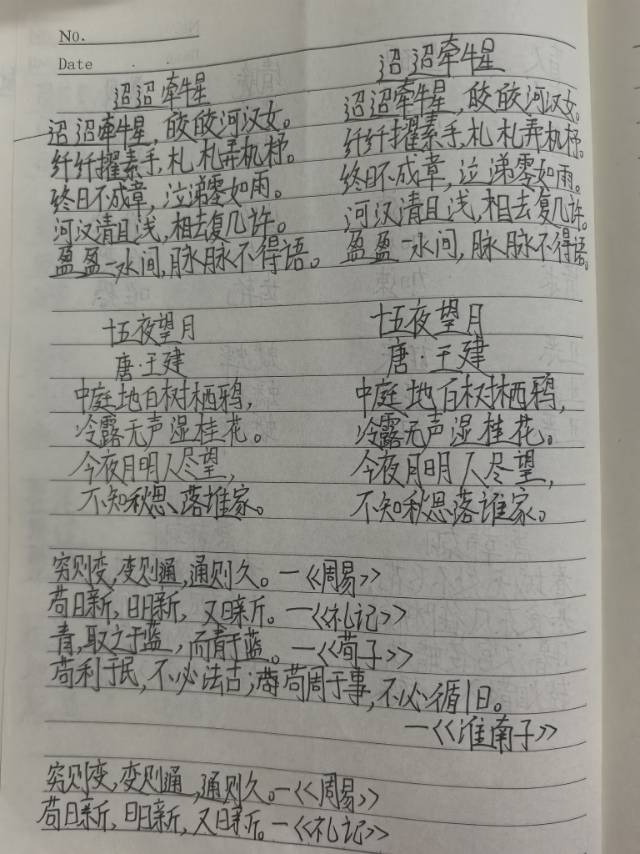 No.
Date
迢迢牵牛星
迢迢牵牛星,皎皎河汉女。
纤纤擢素手,札札弄机杼。
终日不成章,泣涕零如雨。
河汉清且浅,相去复几许。
盈盈一水间,脉脉不得语。
迢迢牵牛星
迢迢牵牛星,皎皎河汉女。
纤纤擢素手,札札弄机杼。
终日不成章,泣涕零如雨。
河汉清且浅,相去复几许。
盈盈一水间,脉脉不得语。
十五夜望月
唐·王建
中庭地白树栖鸦,
冷露无声湿桂花。
今夜月明人尽望,
不知秋思落谁家。
十五夜望月
唐·王建
中庭地白树栖鸦,
冷露无声湿桂花。
今夜月明人尽望,
不知秋思落谁家。
穷则变,变则通,通则久。—《周易》
苟日新,日日新,又日新。—《礼记》
青,取之于蓝,而青于蓝。—《荀子》
苟利于民,不必法古;苟周于事,不必循旧。
—《淮南子》
穷则变,变则通,通则久。—《周易》
苟日新,日日新,又日新。—《礼记》